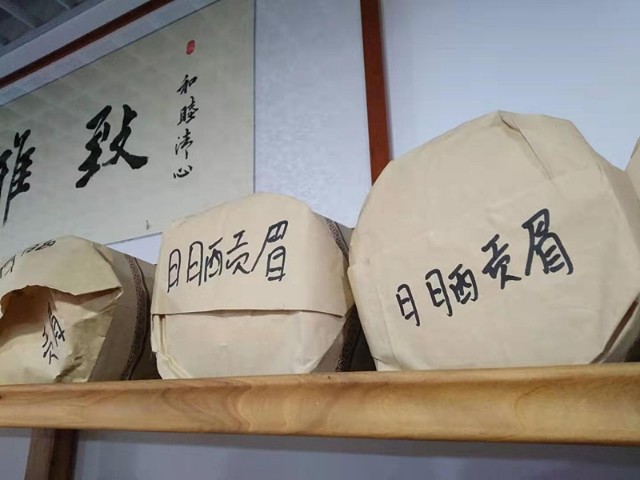 雅致
和睦清心
日日晒贡眉
日日晒贡眉
贡眉